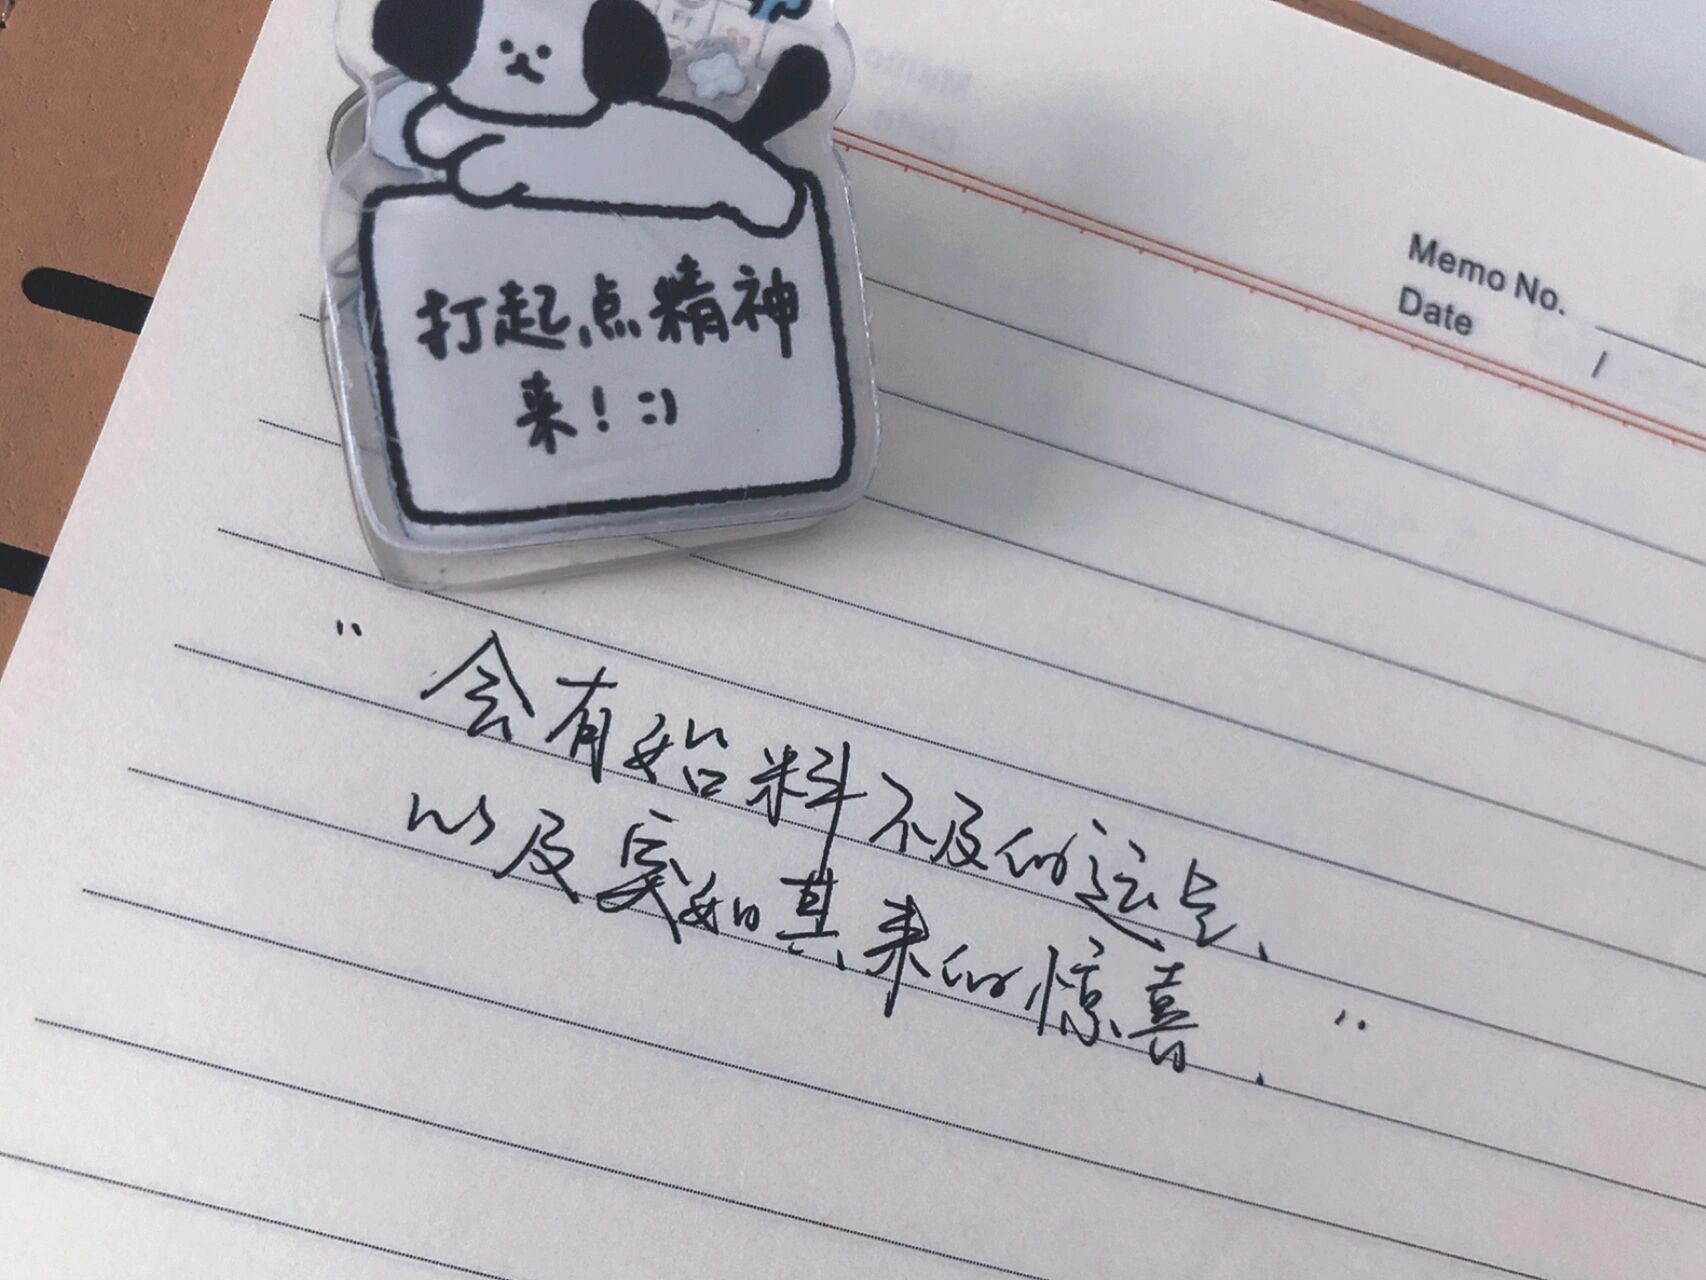 打起点精神
来！:)
Memo No.
Date /
"会有始料不及的运气
以及突如其来的惊喜."